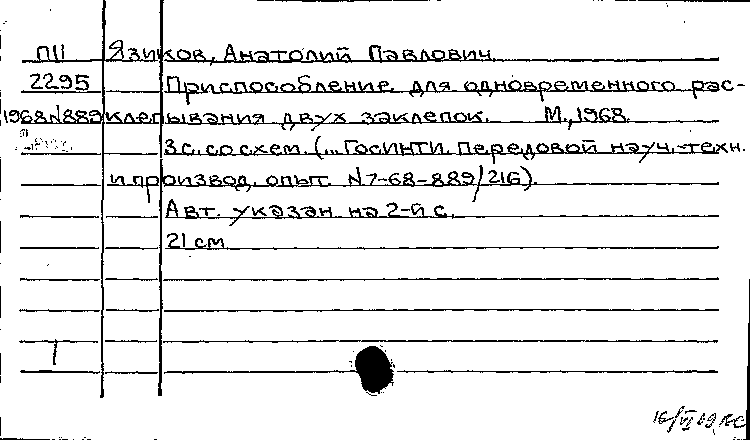 П11 Язиков, Анатолий Павлович.
2295 Приспособление для одновременного рас-
1968N889 клепывания двух заклепок. М., 1968.
3 с. со схем. (... ГОСИНТИ. Передовой науч.-техн.
и производ. опыт. N7-68-889/216).
Авт. указан на 2-й с.
21 см
1
16/VI 69